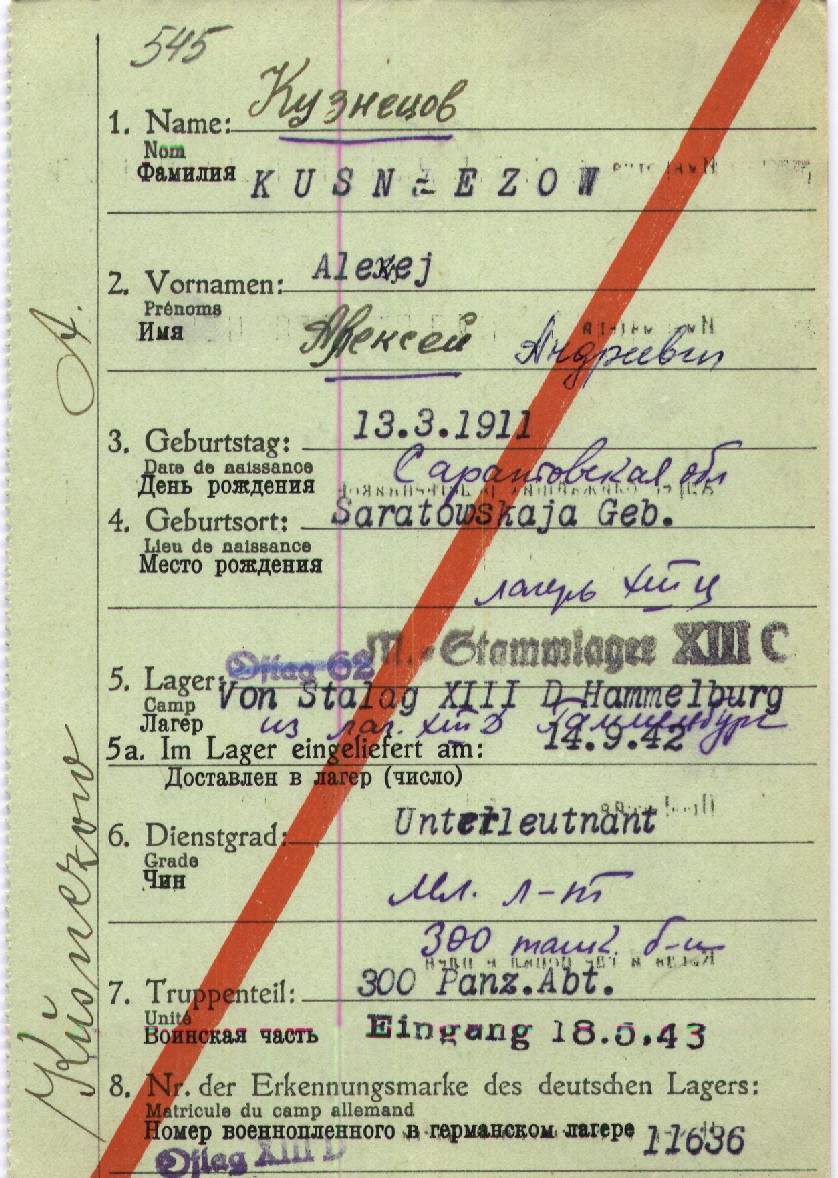 545
Кузнецов
1. Name:
Nom
Фамилия
KUSN EZOW
Alexej
2. Vornamen:
Prénoms
Имя
Алексей Андреевич
13.3.1911
3. Geburtstag:
Date de naissance
День рождения
Саратовская обл
4. Geburtsort: Saratowskaja Geb.
Lieu de naissance
Место рождения
лагерь XIII ц
Oflag 62 M.-Stammlager XIII C
5. Lager: Von Stalag XIII D Hammelburg
Camp
Лагерь
из лаг. XIII D Гаммельбург
5a. Im Lager eingeliefert am: 14.9.42
Доставлен в лагерь (число)
6. Dienstgrad: Unterleutnant
Grade
Чин
Мл. л-нт
300 танк. б-н
7. Truppenteil: 300 Panz.Abt.
Unité
Воинская часть
Eingang 18.5.43
8. Nr. der Erkennungsmarke des deutschen Lagers:
Matricule du camp allemand
Номер военнопленного в германском лагере 11636
Oflag XIII D
Kusnezow A.